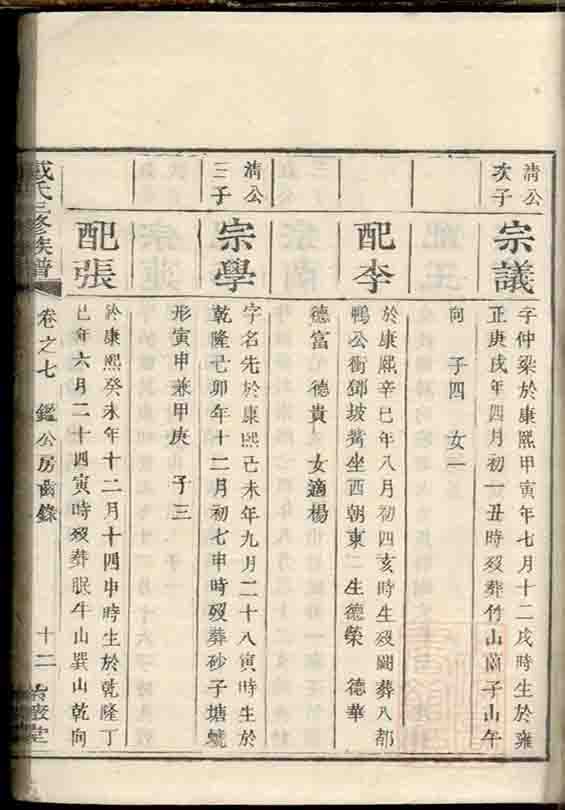 清公
次子
宗議
字仲梁於康熙甲寅年七月十二戌時生於雍
正庚戌年四月初一丑時歿葬竹山蘭子山午
向 子四 女一
配李
於康熙辛巳年八月初四亥時生歿闕葬八都
鴨公衝鄧坡嘴坐西朝東 生德榮 德華
德富 德貴 女適楊
清公
三子
宗學
字名先於康熙己未年九月二十八寅時生於
乾隆己卯年十二月初七申時歿葬砂子塘虢
形寅申兼甲庚 子三
配張
於康熙癸未年十二月十四申時生於乾隆丁
巳年六月二十四寅時歿葬眠牛山巽山乾向
戴氏三修族譜
卷之七 鑑公房齒錄
十二